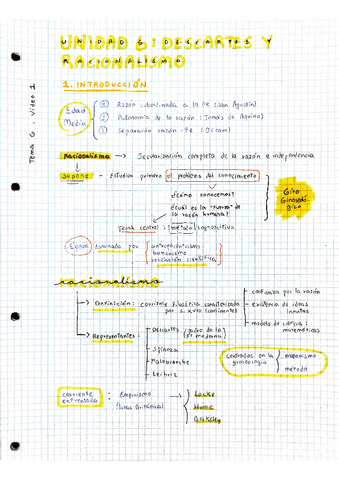 UNIDAD 6: DESCARTES Y
RACIONALISMO
Tema 6 - Video 1
1. INTRODUCCIÓN
Edad Media
① Razón subordinada a la Fe (San Agustín)
② Autonomía de la razón (Tomás de Aquino)
③ Separación razón - Fe (Ockam)
Racionalismo → Secularización completa de la razón e independencia
supone → Estudios primero el problema del conocimiento
¿Cómo conocemos?
¿Cuál es la "fuerza" de
la razón humana?
Giro
Gnoseoló-
gico
Tema central: método
Época dominada por
antropocentrismo
humanismo
revolución científica
racionalismo
→ Definición: corriente filosófica
por s. XVII (continente)
confianza por la razón
existencia de ideas
innatas
modelo de ciencia:
matemáticas
→ Representantes:
Descartes (padre de la
F! moderna)
Spinoza
Malebranche
Leibniz
centrados en la
gnoseología
mecanismo
método
corriente
enfrentada
: Empirismo
(Islas Británicas)
→ Locke
→ Hume
→ Berkeley